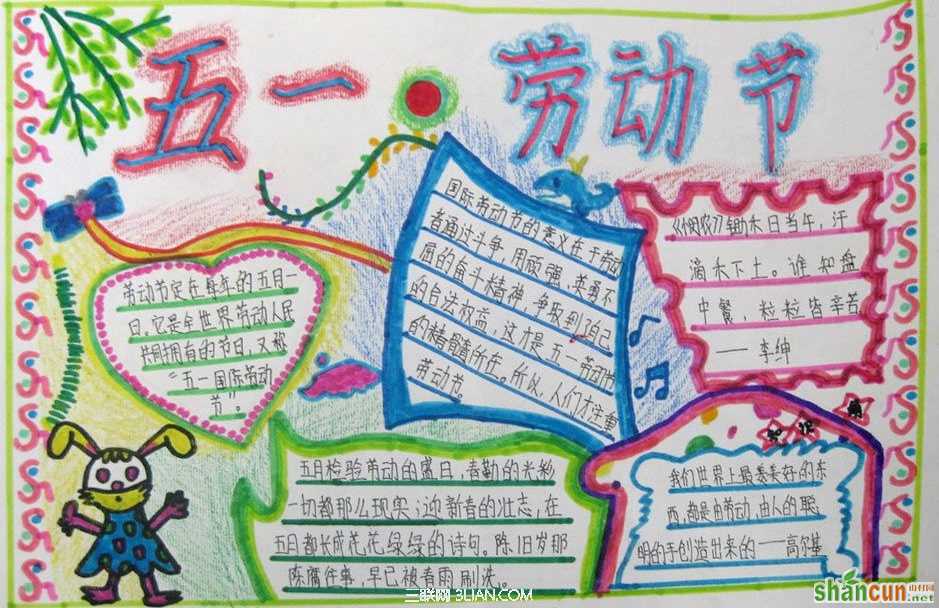 五一 劳动节
劳动节定在每年的五月一
日。它是全世界劳动人民
共同拥有的节日，又称
“五一国际劳动
节”。
国际劳动节的意义在于劳动
者通过斗争，用顽强、英勇不
屈的奋斗精神，争取到了自己
的合法权益，这才是五一劳动节
的精髓所在。所以，人们才注重
劳动节。
《悯农》锄禾日当午，汗
滴禾下土。谁知盘
中餐，粒粒皆辛苦
——李绅
五月检验劳动的盛日，春勤的光彩
一切都那么现实；迎新春的壮志，在
五月都长成花花绿绿的诗句。陈旧岁那
陈腐往事，早已被春雨刷洗。
知识
我们世界上最美好的东
西，都是由劳动、由人的聪
明的手创造出来的——高尔基
三联网 3LIAN.COM
shancun
山村网
.net